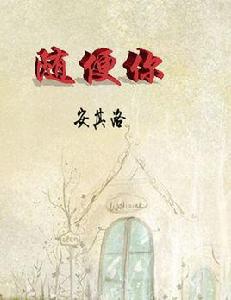 随便你
安其洛
open